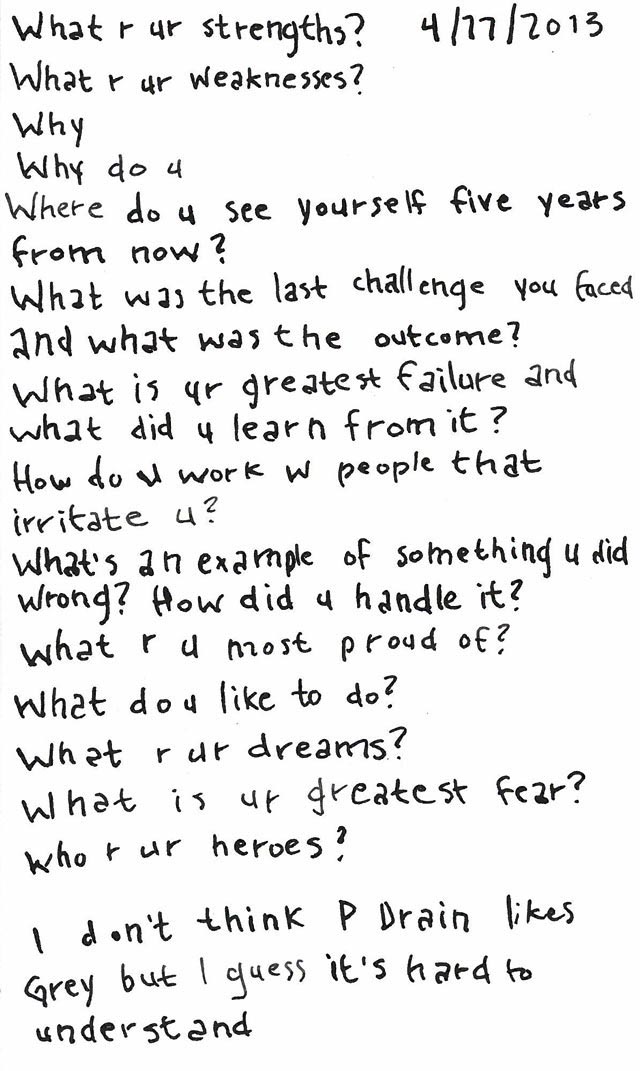 What r ur strengths? 4/27/2013
What r ur weaknesses?
Why
Why do u
Where do u see yourself five years
from now?
What was the last challenge you faced
and what was the outcome?
What is ur greatest failure and
what did u learn from it?
How do u work w people that
irritate u?
What's an example of something u did
wrong? How did u handle it?
What r u most proud of?
What do u like to do?
What r ur dreams?
What is ur greatest fear?
Who r ur heroes?
I don't think P Drain likes
Grey but I guess it's hard to
understand